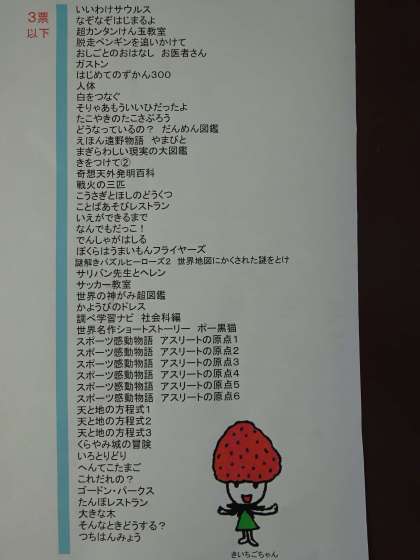 3票
以下
いいわけサウルス
なぞなぞはじまるよ
超カンタンけん玉教室
脱走ペンギンを追いかけて
おしごとのおはなし　お医者さん
ガストン
はじめてのずかん300
人体
白をつなぐ
そりゃあもういいひだったよ
たこやきのたこさぶろう
どうなっているの？　だんめん図鑑
えほん遠野物語　やまびと
まぎらわしい現実の大図鑑
きをつけて②
奇想天外発明百科
戦火の三匹
こうさぎとほしのどうくつ
ことばあそびレストラン
いえができるまで
なんでもだっこ！
でんしゃがはしる
ぼくらはうまいもんフライヤーズ
謎解きパズルヒーローズ2　世界地図にかくされた謎をとけ
サリバン先生とヘレン
サッカー教室
世界の神がみ超図鑑
かようびのドレス
調べ学習ナビ　社会科編
世界名作ショートストーリー　ポー黒猫
スポーツ感動物語　アスリートの原点1
スポーツ感動物語　アスリートの原点2
スポーツ感動物語　アスリートの原点3
スポーツ感動物語　アスリートの原点4
スポーツ感動物語　アスリートの原点5
スポーツ感動物語　アスリートの原点6
天と地の方程式1
天と地の方程式2
天と地の方程式3
くらやみ城の冒険
いろとりどり
へんてこたまご
これだれの？
ゴードン・パークス
たんぽレストラン
大きな木
そんなときどうする？
つちはんみょう
きいちごちゃん